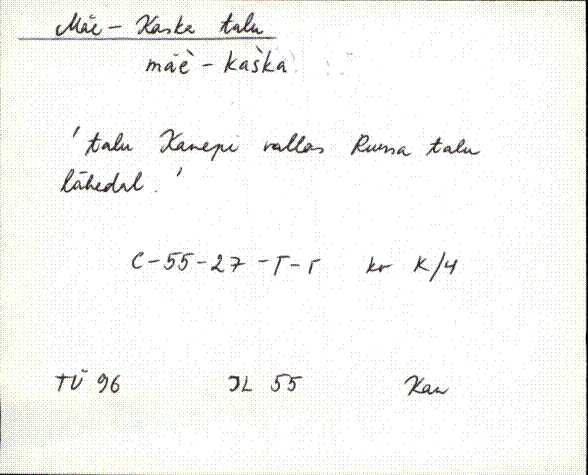 Mäe-Kaska talu
mäè̬-kaška
'talu Kanepi vallas Russa talu
lähedal.'
C-55-27-T-r kv K/4
TÜ 96 JL 55 Kan